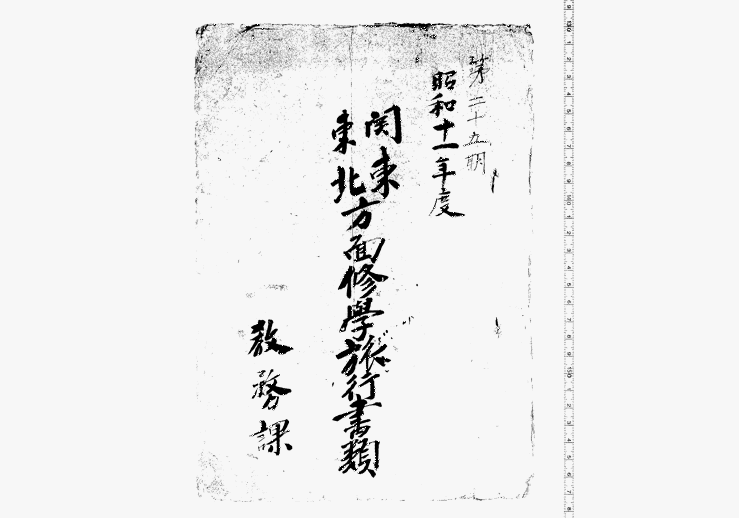 第二十五期
昭和十一年度
関東
東北
方面修學旅行書類
教務課